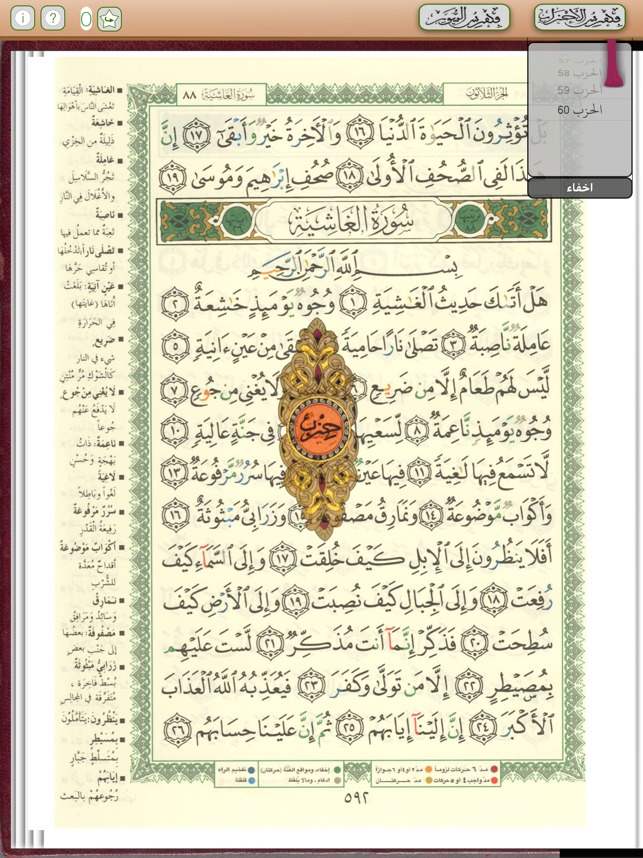 فهرس السور
فهرس الأحزاب
الحزب 58
الحزب 59
الحزب 60
اخفاء
الجزء الثلاثون
سُورَةُ الغَاشِيَة ٨٨
بَلْ تُؤْثِرُونَ ٱلْحَيَوٰةَ ٱلدُّنْيَا ١٦ وَٱلْأَخِرَةُ خَيْرٌ وَأَبْقَىٰٓ ١٧ إِنَّ
هَٰذَا لَفِى ٱلصُّحُفِ ٱلْأُولَىٰ ١٨ صُحُفِ إِبْرَٰهِيمَ وَمُوسَىٰ ١٩
سُورَةُ الغَاشِيَةِ
بِسْمِ ٱللَّهِ ٱلرَّحْمَٰنِ ٱلرَّحِيمِ
هَلْ أَتَىٰكَ حَدِيثُ ٱلْغَٰشِيَةِ ١ وُجُوهٌ يَوْمَئِذٍ خَٰشِعَةٌ ٢
عَامِلَةٌ نَّاصِبَةٌ ٣ تَصْلَىٰ نَارًا حَامِيَةً مِنْ عَيْنٍ ءَانِيَةٍ ٥
لَّيْسَ لَهُمْ طَعَامٌ إِلَّا مِن ضَرِيعٍ لَّا يُغْنِى مِن جُوعٍ ٧
وُجُوهٌ يَوْمَئِذٍ نَّاعِمَةٌ ٨ لِّسَعْيِهَا فِى جَنَّةٍ عَالِيَةٍ ١٠
لَّا تَسْمَعُ فِيهَا لَٰغِيَةً ١١ فِيهَا عَيْنٌ فِيهَا سُرُرٌ مَّرْفُوعَةٌ ١٣
وَأَكْوَابٌ مَّوْضُوعَةٌ ١٤ وَنَمَارِقُ مَصْفُوفَةٌ ١٥ وَزَرَابِىُّ مَبْثُوثَةٌ ١٦
أَفَلَا يَنظُرُونَ إِلَى ٱلْإِبِلِ كَيْفَ خُلِقَتْ ١٧ وَإِلَى ٱلسَّمَآءِ كَيْفَ
رُفِعَتْ ١٨ وَإِلَى ٱلْجِبَالِ كَيْفَ نُصِبَتْ ١٩ وَإِلَى ٱلْأَرْضِ كَيْفَ
سُطِحَتْ ٢٠ فَذَكِّرْ إِنَّمَآ أَنتَ مُذَكِّرٌ ٢١ لَّسْتَ عَلَيْهِم
بِمُصَيْطِرٍ ٢٢ إِلَّا مَن تَوَلَّىٰ وَكَفَرَ ٢٣ فَيُعَذِّبُهُ ٱللَّهُ ٱلْعَذَابَ
ٱلْأَكْبَرَ ٢٤ إِنَّ إِلَيْنَآ إِيَابَهُمْ ٢٥ ثُمَّ إِنَّ عَلَيْنَا حِسَابَهُم ٢٦
حزب
الغَاشِيَةِ: القِيَامَةِ
تَغْشَى النَّاسَ بِأَهْوَالِهَا
خَاشِعَةٌ
ذَلِيلَةٌ من الخِزْيِ
عَامِلَةٌ
تَجُرُّ السَّلاسِلَ
والأَغْلالَ في النَّارِ
نَاصِبَةٌ
تَعِبَةٌ مما تعملُ فيها
تَصْلَى نَاراً: تَدْخُلُهَا
أو تُقاسِي حَرَّهَا
عَيْنٍ آنِيَةٍ: بَلَغَتْ
أَنَاهَا (غايتها)
في الحَرَارَةِ
ضَرِيعٍ
شيء في النار
كالشَّوْكِ مُرٍّ مُنْتِنٍ
لا يُغْنِي مِن جُوعٍ
لا يَدْفَعُ عَنْهُم
جُوعاً
نَاعِمَةٌ: ذَاتُ
بَهْجَةٍ وَحُسْنٍ
لاغِيَةً
لَغْواً وباطِلاً
سُرُرٌ مَرْفُوعَةٌ
رَفِيعَةُ القَدْرِ
أَكْوَابٌ مَوْضُوعَةٌ
أقداحٌ مُعَدَّةٌ
للشُّرْبِ
نَمَارِقُ
وَسَائِدُ ومَرَافِقُ
مَصْفُوفَةٌ: بعضُها
إلى جَنْبِ بعضٍ
زَرَابِيُّ مَبْثُوثَةٌ
بُسُطٌ فاخِرَةٌ،
مُتَفَرِّقَةٌ في المجالِسِ
يَنْظُرُونَ: يَتَأَمَّلُونَ
بِمُسَيْطِرٍ
بِمُتَسَلِّطٍ جَبَّارٍ
إِيَابَهُمْ
رُجُوعَهُمْ بالبَعْثِ
مدّ ٦ حركات لزوماً
مدّ ٢ او ٤ او ٦ جوازاً
إخفاء، ومواقع الغُنَّة (حركتان)
تفخيم الراء
مدّ واجب ٤ او ٥ حركات
مدّ حركتان
ادغام، وما لا يُلفظ
قلقلة
٥٩٢